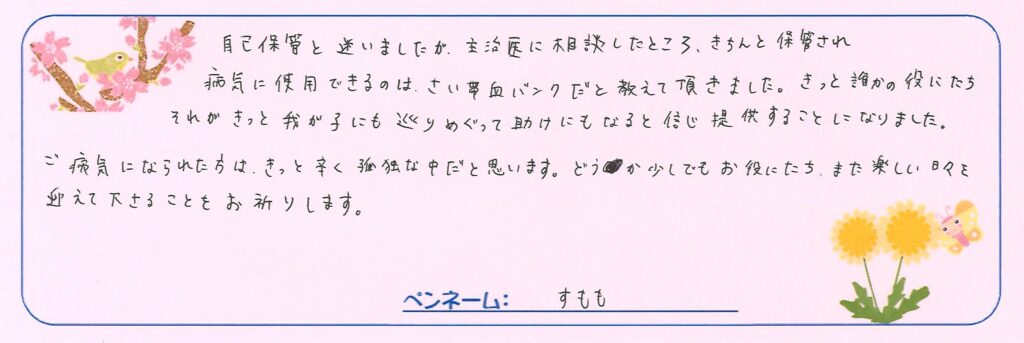 自己保管と迷いましたが、主治医に相談したところ、きちんと保管され
病気に使用できるのは、さい帯血バンクだと教えて頂きました。きっと誰かの役にたち
それがきっと我が子にも巡りめぐって助けにもなると信じ提供することになりました。
ご病気になられた方は、きっと辛く孤独な中だと思います。どうか少しでもお役にたち、また楽しい日々を
迎えて下さることをお祈りします。
ペンネーム: すもも